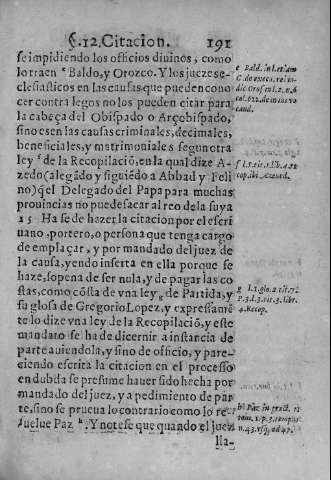 §.12. Citacion. 191
se impidiendo los officios diuinos, como
lo traen ᵉ Baldo, y Orozco. Y los juezes e-
clesiasticos en las causas que pueden cono
cer contra legos no los pueden citar para
la cabeça del Obispado o Arçobispado,
sino es en las causas criminales, decimales,
beneficiales, y matrimoniales segun otra
ley ᶠ de la Recopilaciõ, en la qual dize A-
zedo (alegãdo y siguiẽdo a Abbad y Feli
no) q̃ el Delegado del Papa para muchas
prouincias no puede sacar al reo de la suya
15 Ha se de hazer la citacion por el escri
uano, portero, o persona que tenga cargo
de emplaçar, y por mandado del juez de
la causa, yendo inserta en ella porque se
haze, so pena de ser nula, y de pagar las co
stas, como cõsta de vna ley g de Partida, y
su glosa de Gregorio Lopez, y expressamẽ
te lo dize vna ley de la Recopilaciõ, y este
mandato se ha de dicernir a instancia de
parte auiendola, y sino de officio, y pare-
ciendo escrita la citacion en el processo
en dubda se presume hauer sido hecha por
mandado del juez, y a pedimiento de par
te, sino se prueua lo contrario como lo re-
suelue Paz ʰ. Y notese que quando el juez
lla-
e Bald. in l.
C. de execu. rei iu-
dic. Orosc. in l. 2. n. 6
cand.
f l. 5. tit. 1. lib. 4. Re
cop. ibi Azeued.
g l. 1. glo. 2. tit. 7.
p. 3. l. 3. tit. 3. libr.
4. Recop.
h Paz in pract. 1.
tom. 1. p. 3. tempus
n. 43. vsq; ad 47.